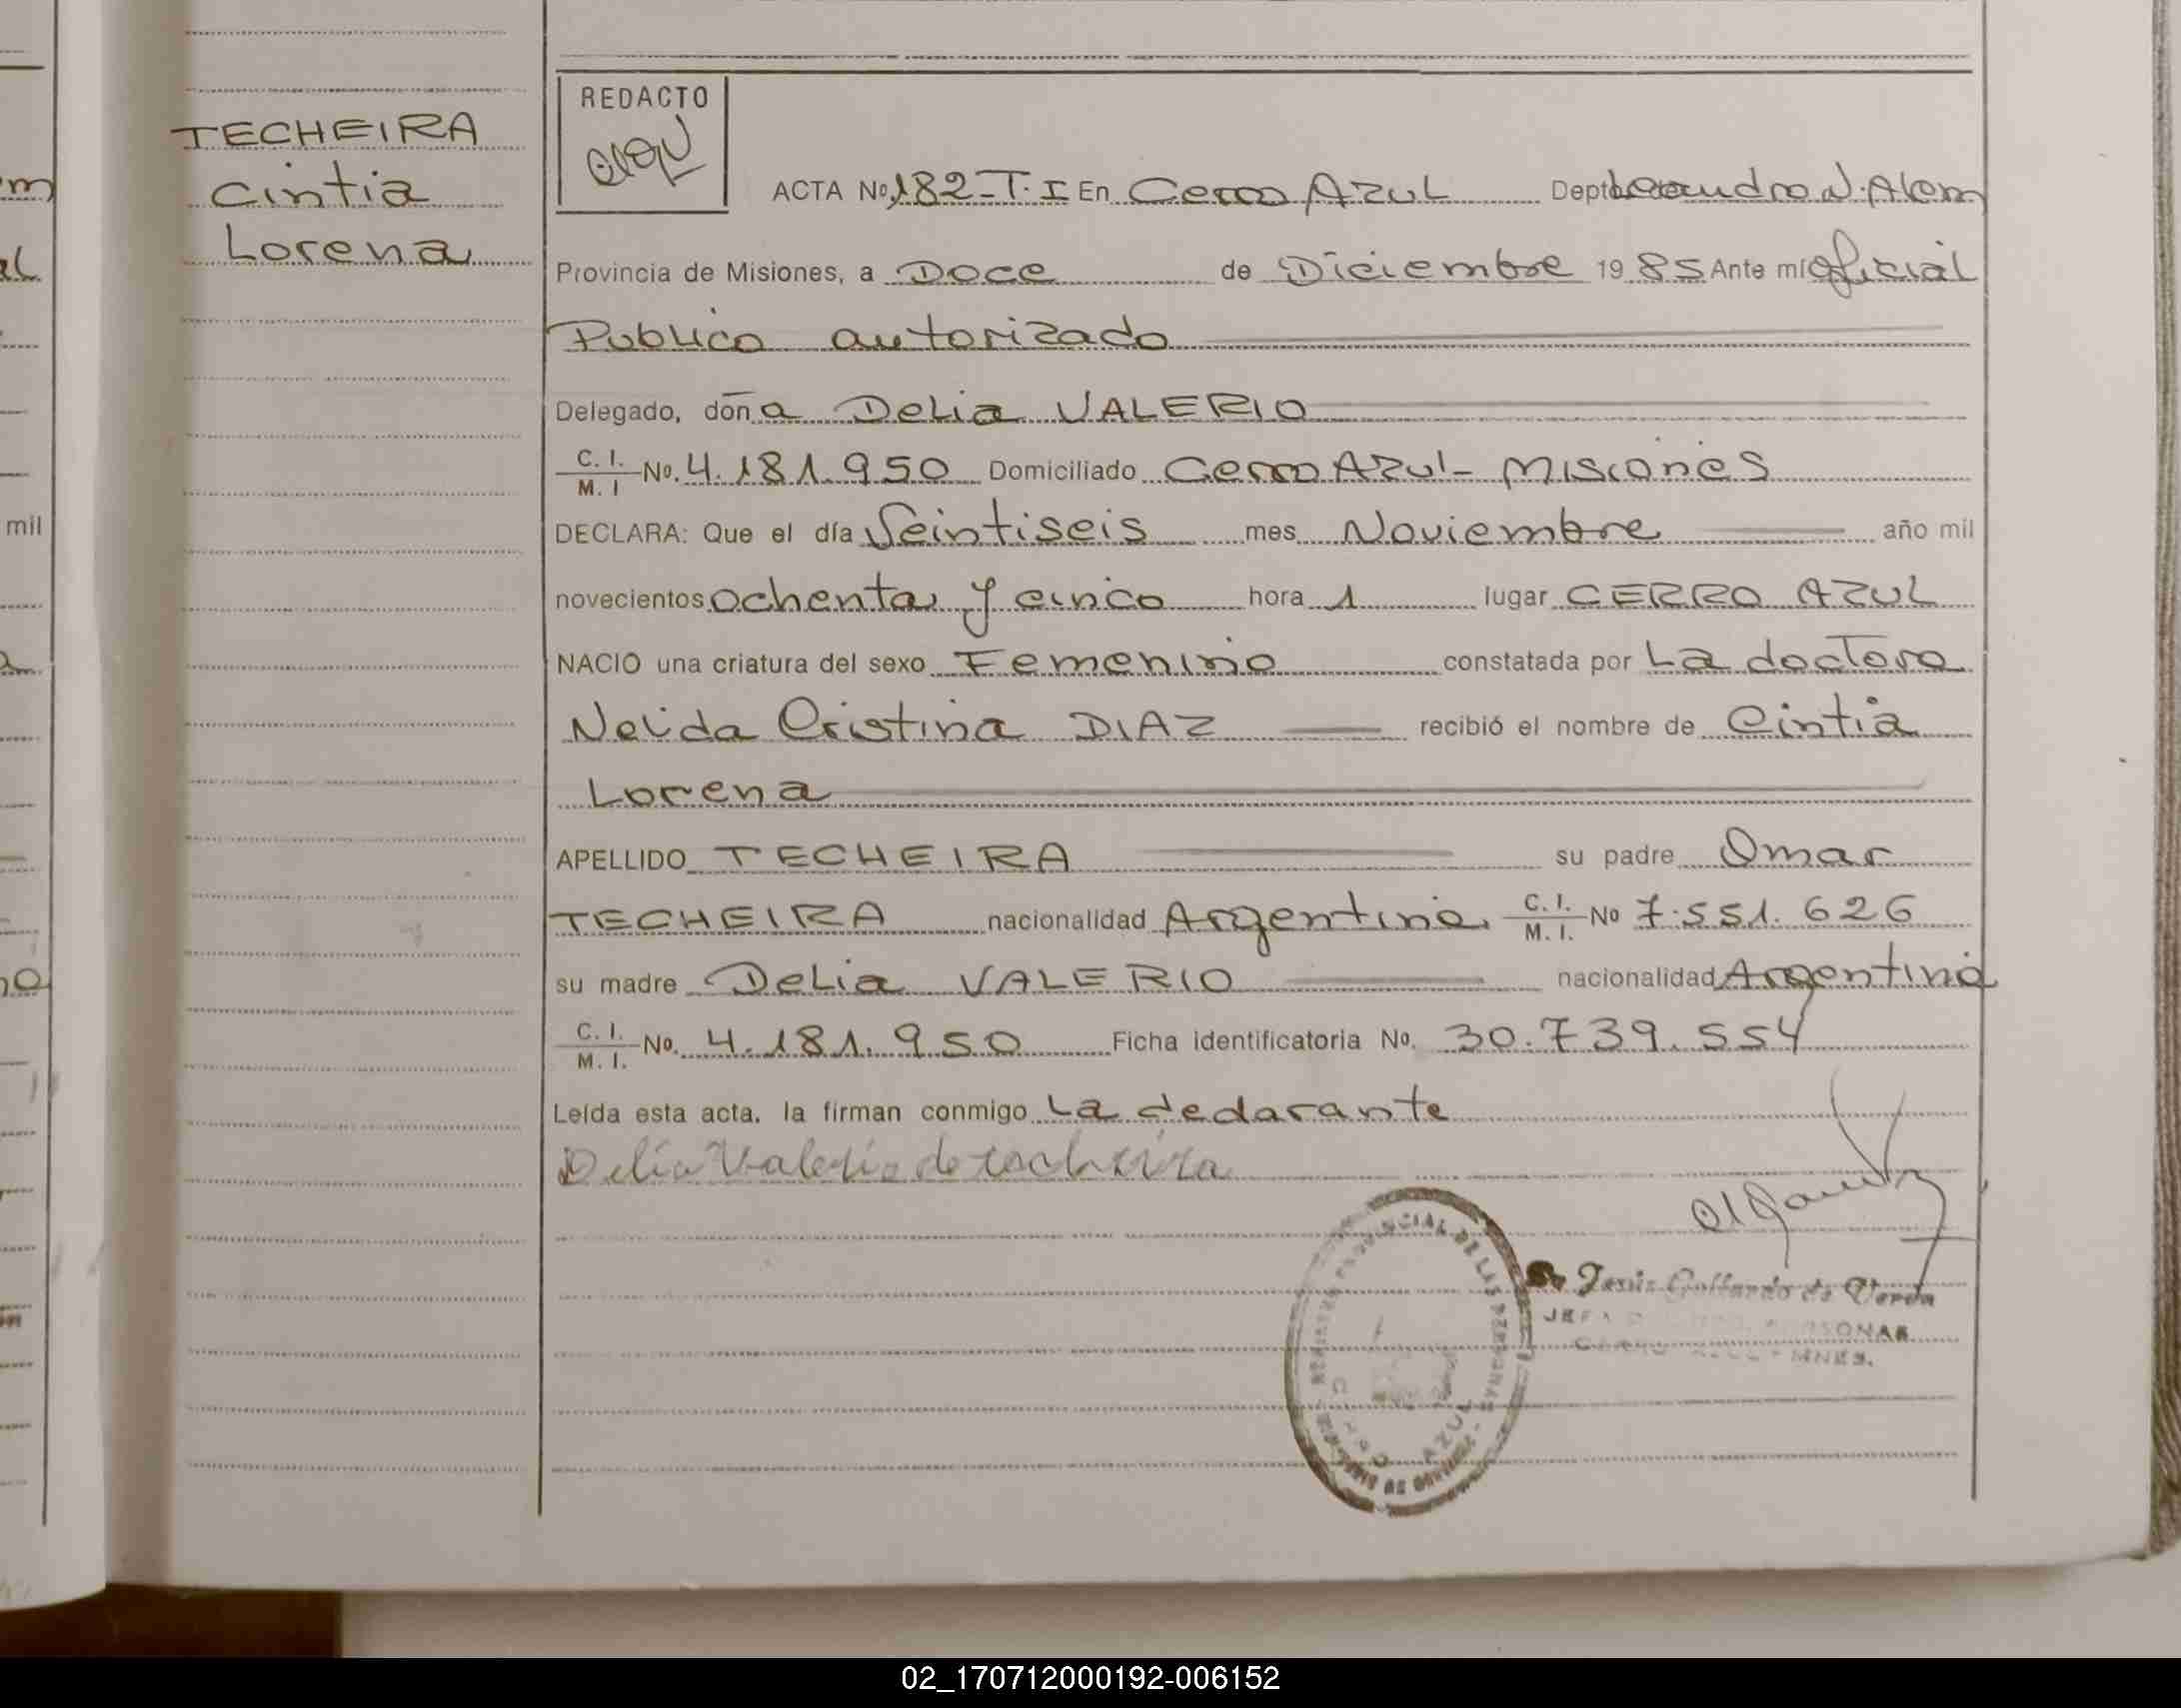 TECHEIRA
Cintia
Lorena
REDACTO
ACTA Nº 182-T.I En Cerro AZUL Depto. Leandro N. Alem
Provincia de Misiones, a Doce de Diciembre 19 85 Ante mí Oficial
Publico autorizado
Delegado, don a Delia VALERIO
C. I. / M. I Nº. 4.181.950 Domiciliado Cerro AZUL - Misiones
DECLARA: Que el día Veintiseis mes Noviembre año mil
novecientos ochenta y cinco hora 1 lugar CERRO AZUL
NACIO una criatura del sexo Femenino constatada por La doctora
Nelida Cristina DIAZ recibió el nombre de Cintia
Lorena
APELLIDO TECHEIRA su padre Omar
TECHEIRA nacionalidad Argentina C. I. / M. I. Nº 7.551.626
su madre Delia VALERIO nacionalidad Argentina
C. I. / M. I. Nº. 4.181.950 Ficha identificatoria Nº. 30.739.554
Leída esta acta, la firman conmigo La declarante
Delia Valerio de techeira
mil
02_170712000192-006152